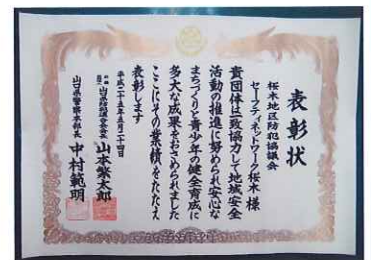 表彰状
桜木地区防犯協議会
セーフティネットワーク桜木 様
貴団体は一致協力して地域安全
活動の推進に努められ安心な
まちづくりと青少年の健全育成に
多大な成果をおさめられました
ここにその業績をたたえ
表彰します
平成二十五年五月二十四日
山口県防犯連合会会長 山本繁太郎
山口県警察本部長 中村範明